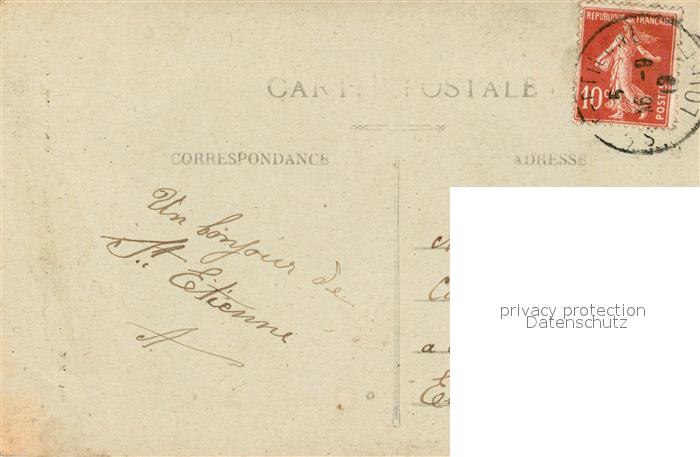 REPUBLIQUE FRANÇAISE
10c
POSTES
CARTE POSTALE
CORRESPONDANCE
ADRESSE
Un bonjour de
St. Etienne
A.
a
privacy protection
Datenschutz